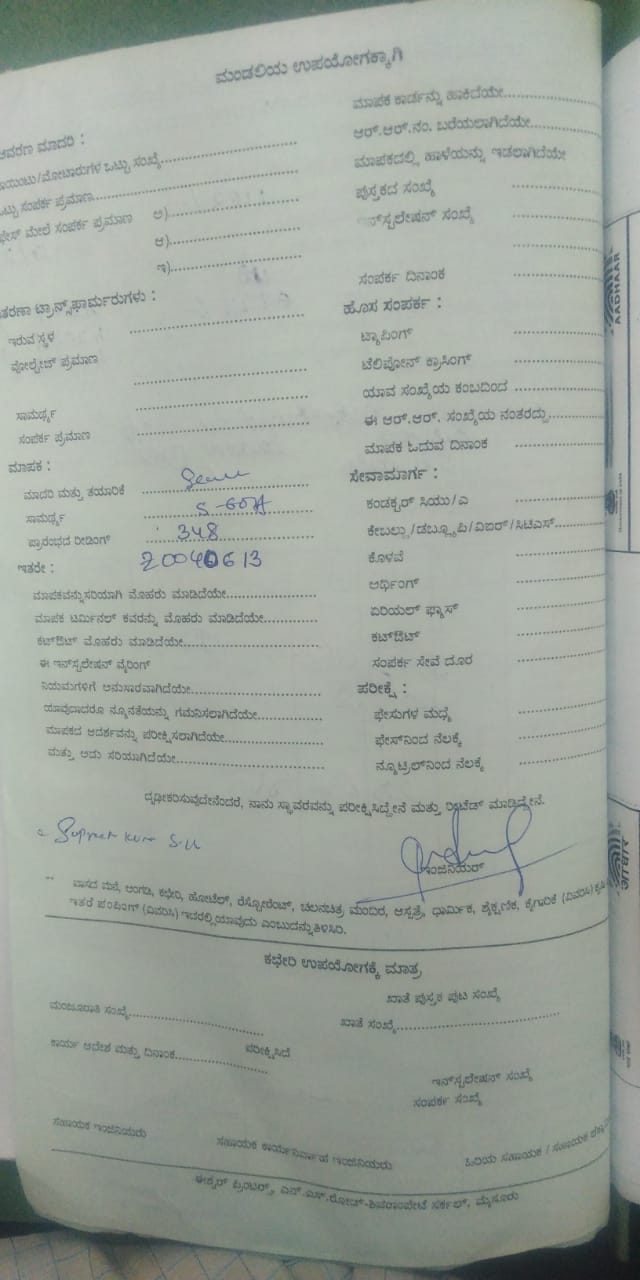 ಮಂಡಲಿಯ ಉಪಯೋಗಕ್ಕಾಗಿ
ಆವರಣ ಮಾದರಿ :
ಪಾಯಿಂಟು/ಮೋಟಾರುಗಳ ಒಟ್ಟು ಸಂಖ್ಯೆ
ಒಟ್ಟು ಸಂಪರ್ಕ ಪ್ರಮಾಣ
ಫೇಸ್ ಮೇಲೆ ಸಂಪರ್ಕ ಪ್ರಮಾಣ ಅ)
ಆ)
ಇ)
ಟ್ರಾನ್ಸ್‌ಫಾರ್ಮರುಗಳು :
ಇರುವ ಸ್ಥಳ
ವೋಲ್ಟೇಜ್ ಪ್ರಮಾಣ
ಸಾಮರ್ಥ್ಯ
ಸಂಪರ್ಕ ಪ್ರಮಾಣ
ಮಾಪಕ :
ಮಾದರಿ ಮತ್ತು ತಯಾರಿಕೆ
ಸಾಮರ್ಥ್ಯ 5-60A
ಪ್ರಾರಂಭದ ರೀಡಿಂಗ್ 348
ಇತರೇ : 20040613
ಮಾಪಕವನ್ನು ಸರಿಯಾಗಿ ಮೊಹರು ಮಾಡಿದೆಯೇ
ಮಾಪಕ ಟರ್ಮಿನಲ್ ಕವರನ್ನು ಮೊಹರು ಮಾಡಿದೆಯೇ
ಕಟ್‌ಔಟ್ ಮೊಹರು ಮಾಡಿದೆಯೇ
ಈ ಇನ್‌ಸ್ಟಲೇಷನ್ ವೈರಿಂಗ್
ನಿಯಮಗಳಿಗೆ ಅನುಸಾರವಾಗಿದೆಯೇ
ಯಾವುದಾದರೂ ನ್ಯೂನತೆಯನ್ನು ಗಮನಿಸಲಾಗಿದೆಯೇ
ಮಾಪಕದ ಆದರ್ಶವನ್ನು ಪರೀಕ್ಷಿಸಲಾಗಿದೆಯೇ
ಮತ್ತು ಅದು ಸರಿಯಾಗಿದೆಯೇ
ಮಾಪಕ ಕಾರ್ಡನ್ನು ಹಾಕಿದೆಯೇ
ಆರ್.ಆರ್.ನಂ. ಬರೆಯಲಾಗಿದೆಯೇ
ಮಾಪಕದಲ್ಲಿ ಹಾಳೆಯನ್ನು ಇಡಲಾಗಿದೆಯೇ
ಪುಸ್ತಕದ ಸಂಖ್ಯೆ
ಇನ್‌ಸ್ಟಲೇಷನ್ ಸಂಖ್ಯೆ
ಸಂಪರ್ಕ ದಿನಾಂಕ
ಹೊಸ ಸಂಪರ್ಕ :
ಟ್ಯಾಪಿಂಗ್
ಟೆಲಿಪೋನ್ ಕ್ರಾಸಿಂಗ್
ಯಾವ ಸಂಖ್ಯೆಯ ಕಂಬದಿಂದ
ಈ ಆರ್.ಆರ್. ಸಂಖ್ಯೆಯ ನಂತರದ್ದು
ಮಾಪಕ ಓದುವ ದಿನಾಂಕ
ಸೇವಾಮಾರ್ಗ :
ಕಂಡಕ್ಟರ್ ಸಿಯು/ಎ
ಕೇಬಲ್ಲು/ಡಬ್ಲ್ಯೂಪಿ/ವಿಐರ್/ಸಿಟಿಎಸ್
ಕೊಳವೆ
ಅರ್ಥಿಂಗ್
ಏರಿಯಲ್ ಫ್ಯೂಸ್
ಕಟ್‌ಔಟ್
ಸಂಪರ್ಕ ಸೇವೆ ದೂರ
ಪರೀಕ್ಷೆ :
ಫೇಸುಗಳ ಮಧ್ಯೆ
ಫೇಸ್‌ನಿಂದ ನೆಲಕ್ಕೆ
ನ್ಯೂಟ್ರಲ್‌ನಿಂದ ನೆಲಕ್ಕೆ
ದೃಢೀಕರಿಸುವುದೇನೆಂದರೆ, ನಾನು ಸ್ಥಾವರವನ್ನು ಪರೀಕ್ಷಿಸಿದ್ದೇನೆ ಮತ್ತು ರಿಟೆಡ್ ಮಾಡಿದ್ದೇನೆ.
ಇಂಜಿನಿಯರ್
** ವಾಸದ ಮನೆ, ಅಂಗಡಿ, ಕಛೇರಿ, ಹೋಟೆಲ್, ರೆಸ್ಟೋರೆಂಟ್, ಚಲನಚಿತ್ರ ಮಂದಿರ, ಆಸ್ಪತ್ರೆ, ಧಾರ್ಮಿಕ, ಶೈಕ್ಷಣಿಕ, ಕೈಗಾರಿಕೆ (ವಿವರಿಸಿ) ಕೃಷಿ
ಇತರೆ ಪಂಪಿಂಗ್ (ವಿವರಿಸಿ) ಇದರಲ್ಲಿ ಯಾವುದು ಎಂಬುದನ್ನು ತಿಳಿಸಿರಿ.
ಕಛೇರಿ ಉಪಯೋಗಕ್ಕೆ ಮಾತ್ರ
ಖಾತೆ ಪುಸ್ತಕ ಪುಟ ಸಂಖ್ಯೆ
ಮಂಜೂರಾತಿ ಸಂಖ್ಯೆ ಖಾತೆ ಸಂಖ್ಯೆ
ಕಾರ್ಯ ಆದೇಶ ಮತ್ತು ದಿನಾಂಕ ಪರೀಕ್ಷಿಸಿದೆ
ಇನ್‌ಸ್ಟಲೇಷನ್ ಸಂಖ್ಯೆ
ಸಂಪರ್ಕ ಸಂಖ್ಯೆ
ಸಹಾಯಕ ಇಂಜಿನಿಯರು ಸಹಾಯಕ ಕಾರ್ಯನಿರ್ವಾಹ ಇಂಜಿನಿಯರು ಹಿರಿಯ ಸಹಾಯಕ / ಸಹಾಯಕ
ಈಶ್ವರ್ ಪ್ರಿಂಟರ್ಸ್, ಎನ್.ಎಸ್.ರೋಡ್-ಶಿವರಾಂಪೇಟೆ ಸರ್ಕಲ್, ಮೈಸೂರು
AADHAAR
आधार